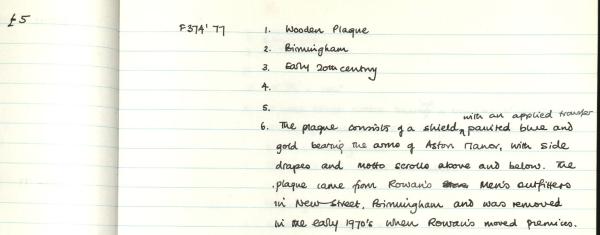 £5
F374'77 1. Wooden Plaque
2. Birmingham
3. Early 20th century
4.
5.
with an applied transfer
6. The plaque consists of a shield ^ painted blue and
gold bearing the arms of Aston Manor, with side
drapes and motto scrolls above and below. The
plaque came from Rowan's Men's outfitters
in New Street, Birmingham and was removed
in the early 1970's when Rowan's moved premises.